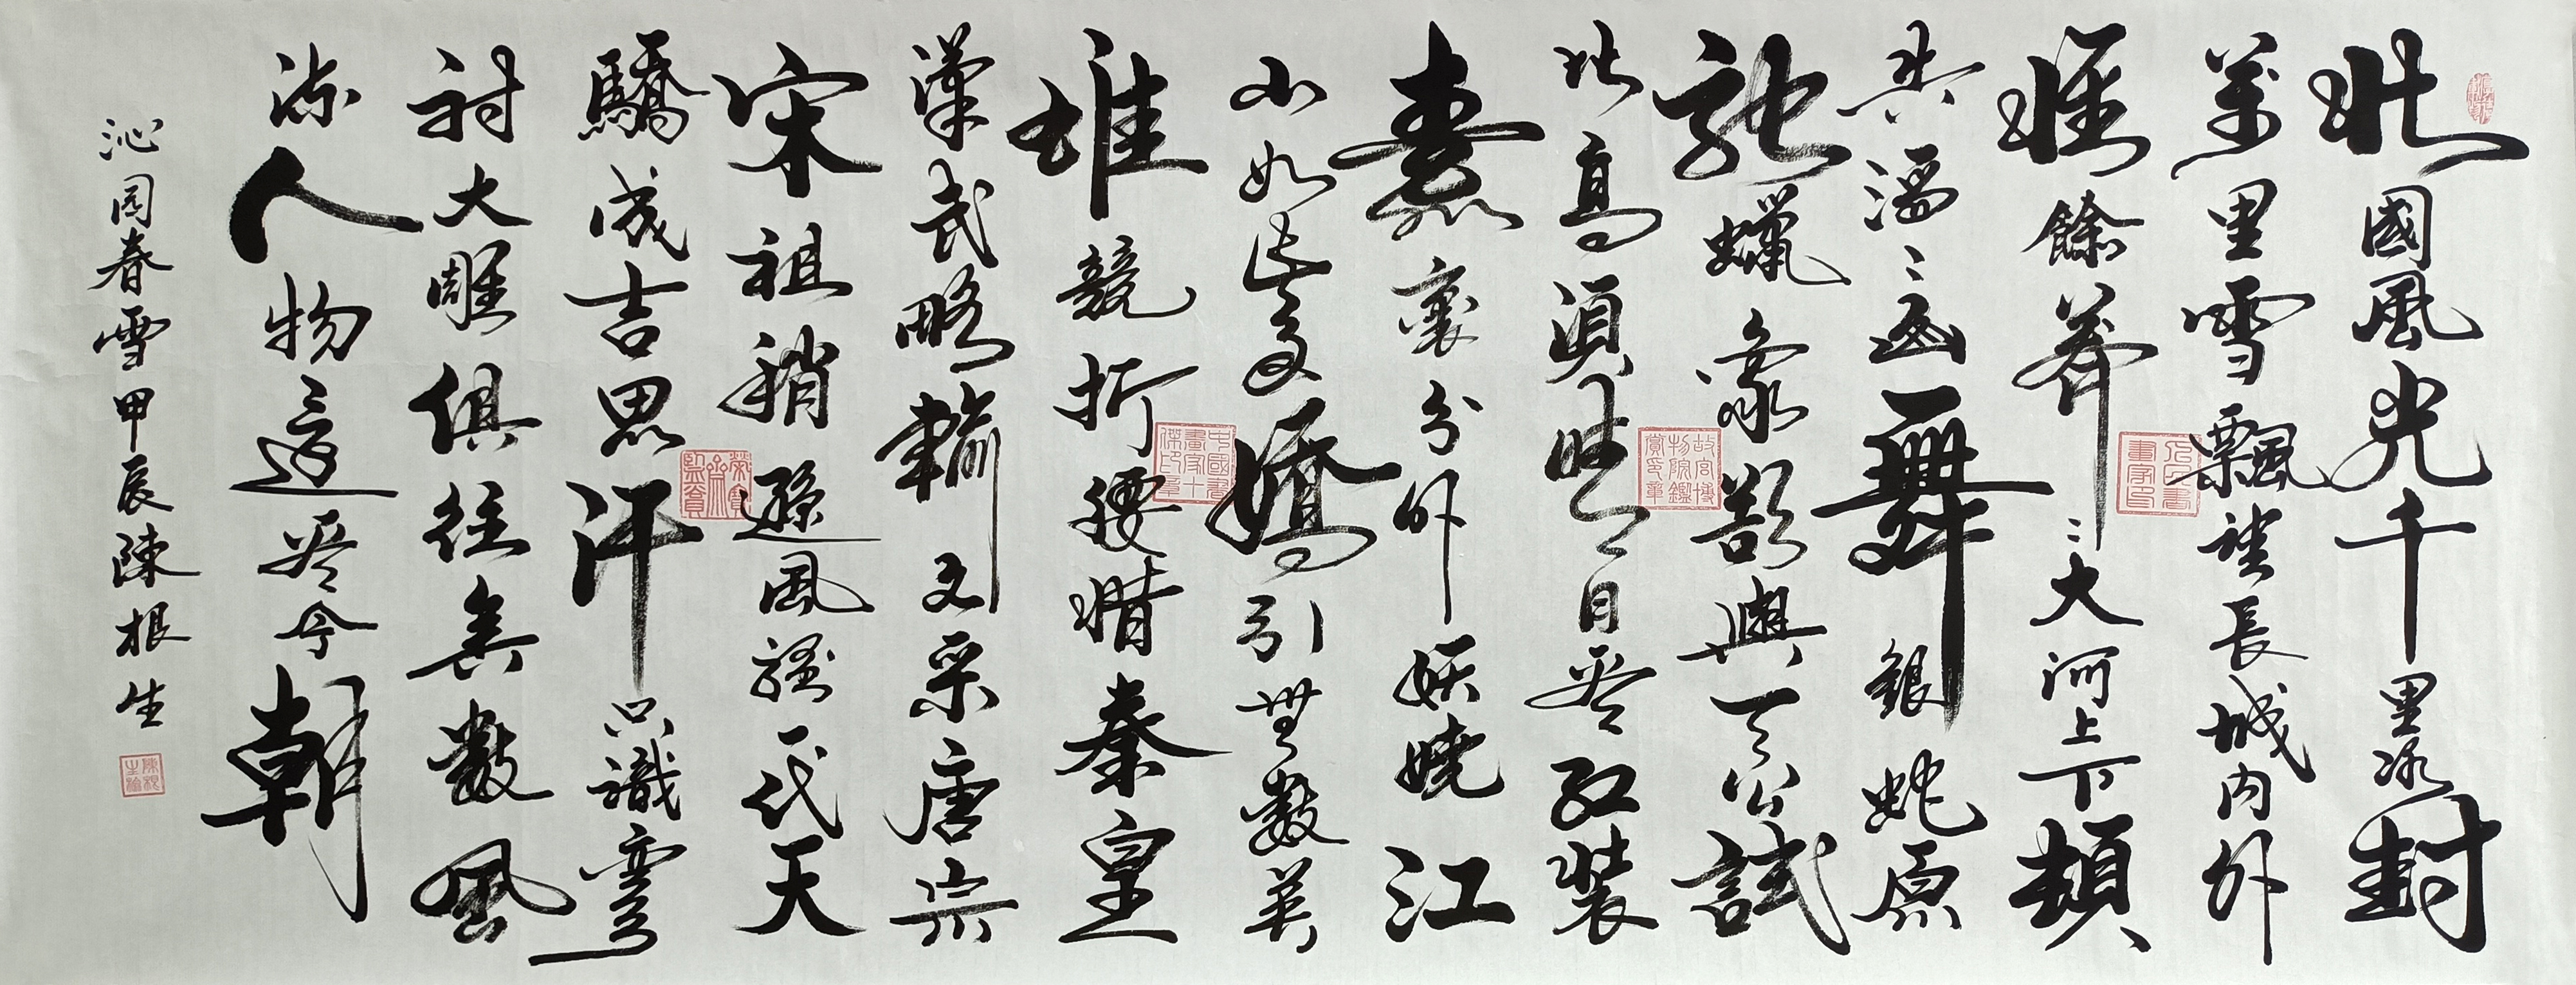 北國風光千里冰封
萬里雪飄望長城内外
惟餘莽〻大河上下頓
失滔〻山舞銀蛇原
馳蠟象欲與天公試
比高須晴日看红裝
素裹分外妖嬈江
山如此多嬌引無數英
雄競折腰惜秦皇
漢武略輸文采唐宗
宋祖稍遜風骚一代天
驕成吉思汗只識彎
射大雕俱往矣數風
流人物還看今朝
沁园春雪甲辰陳根生
故宫博物院鑑賞印章